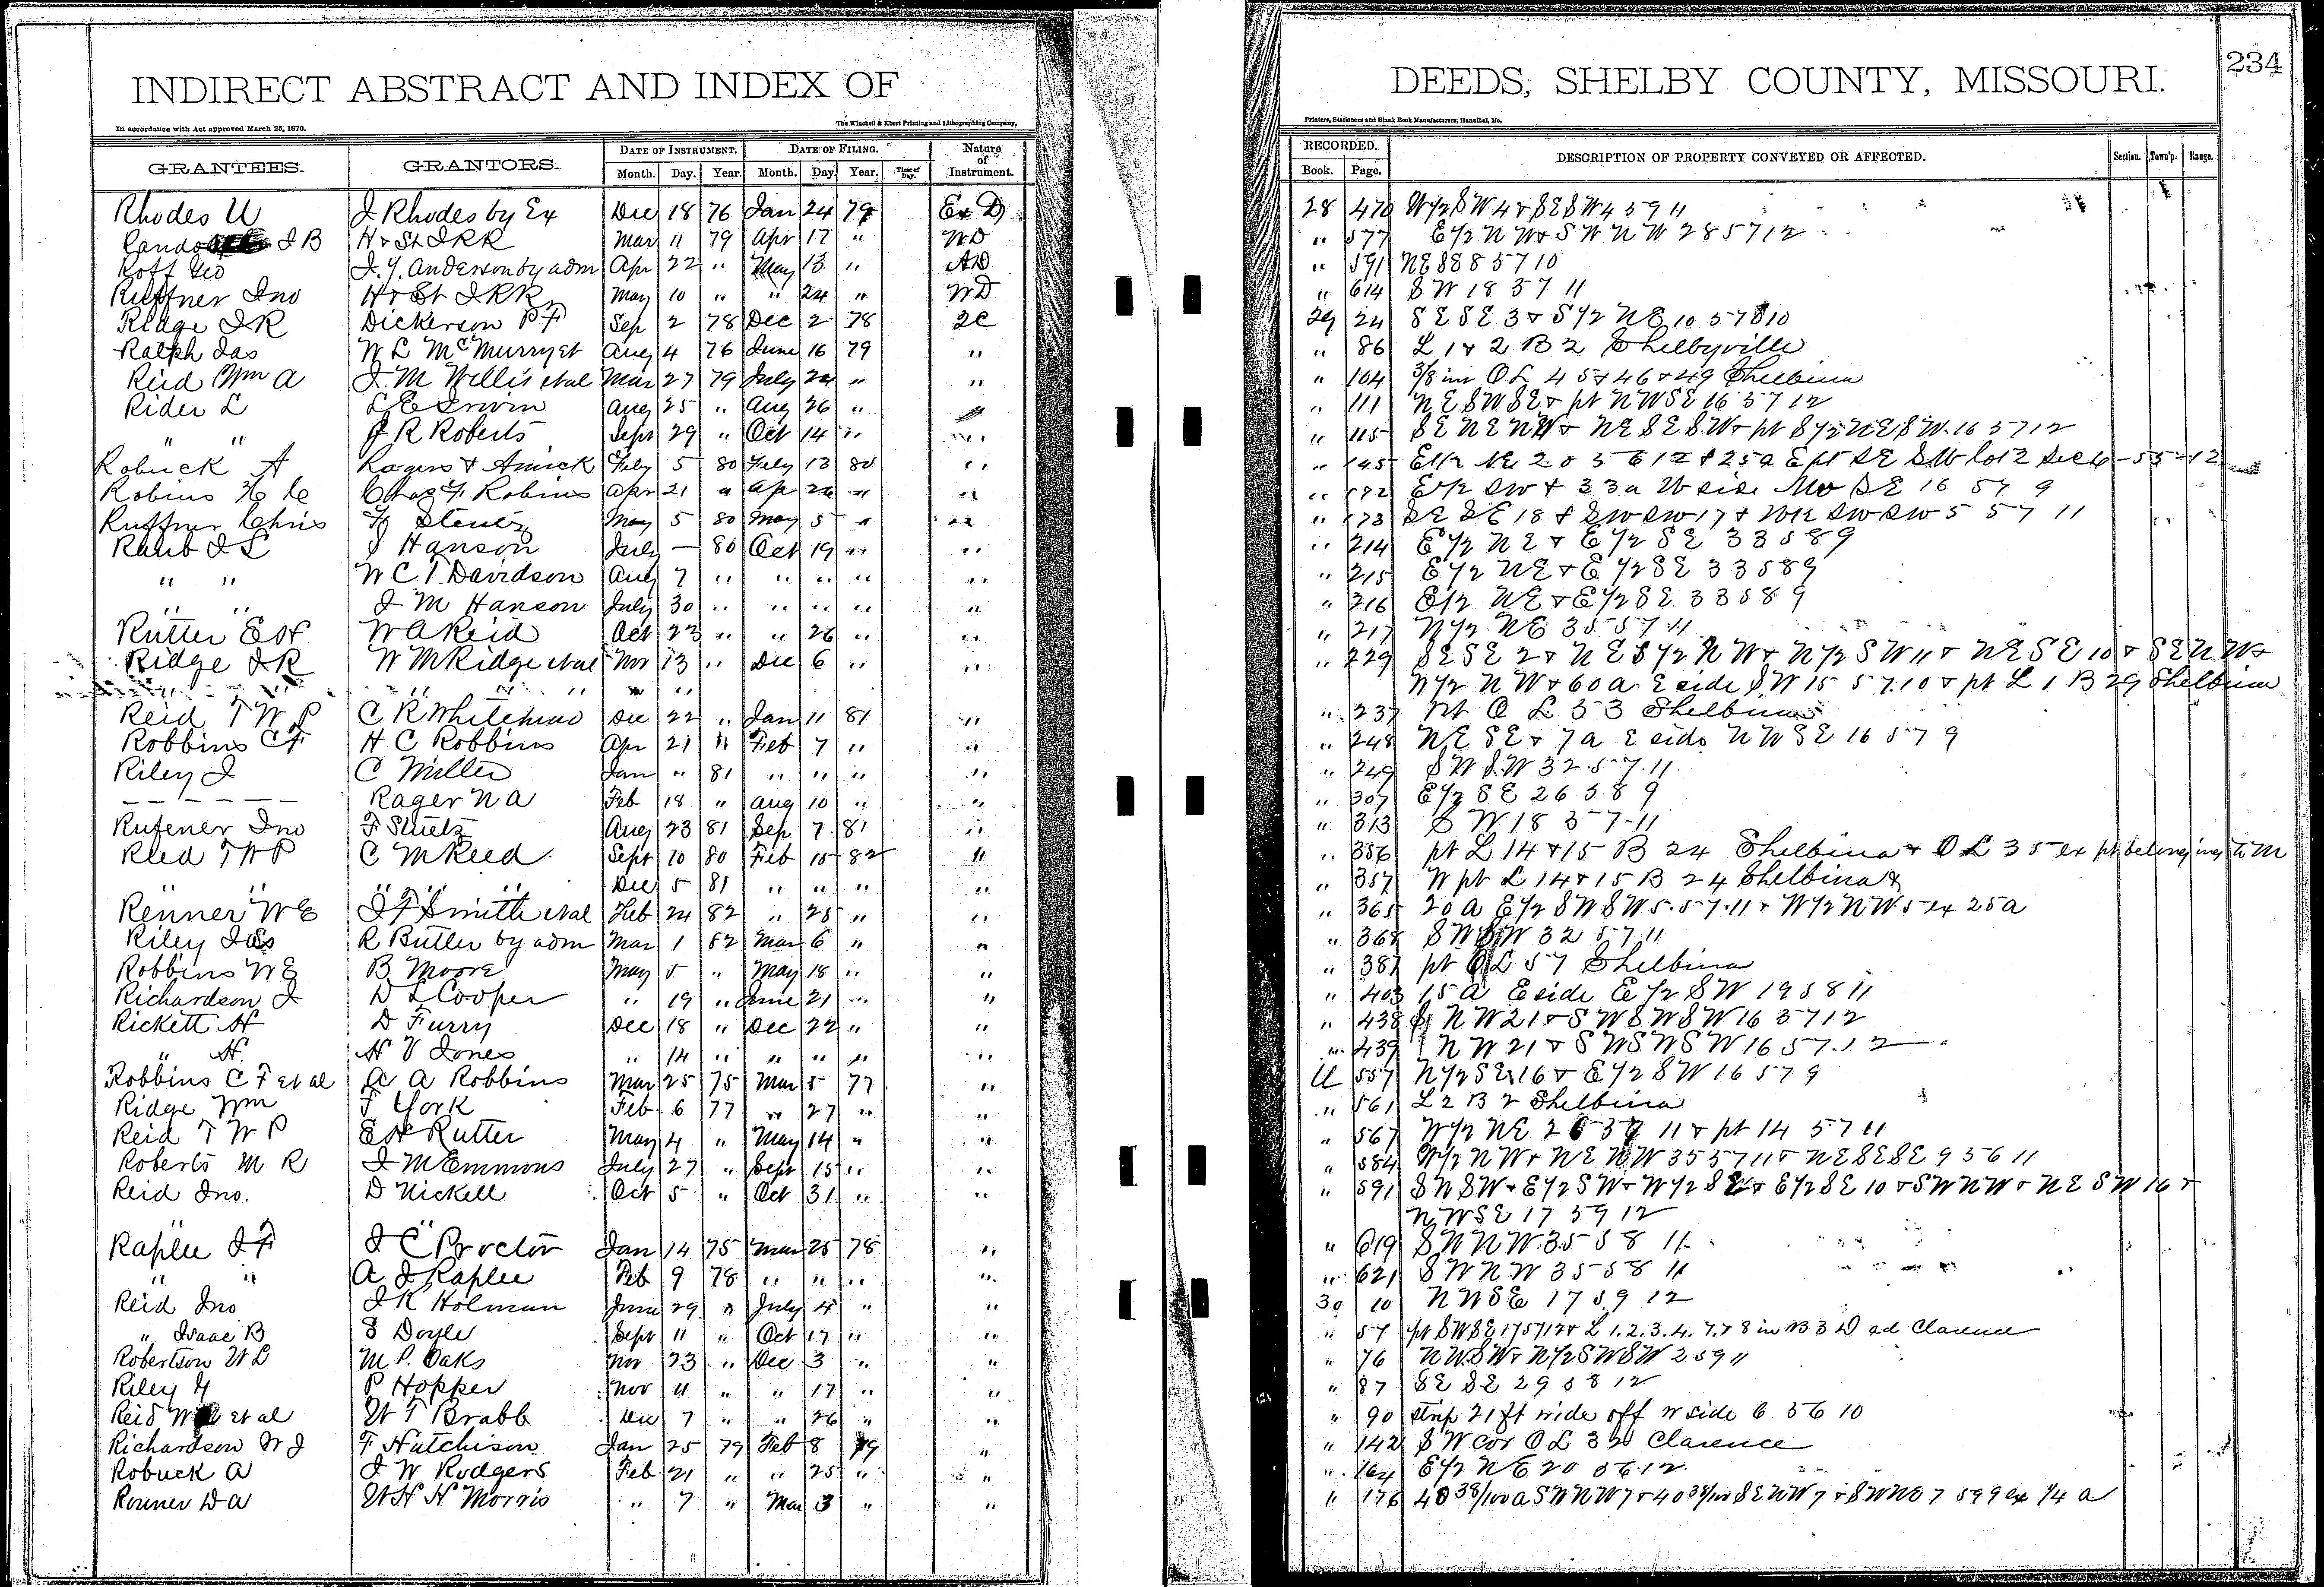 INDIRECT ABSTRACT AND INDEX OF DEEDS, SHELBY COUNTY, MISSOURI. 234
In accordance with Act approved March 25, 1870. The Winchell & Ebert Printing and Lithographing Company, Printers, Stationers and Blank Book Manufacturers, Hannibal, Mo.
GRANTEES. GRANTORS. DATE OF INSTRUMENT. DATE OF FILING. Nature of Instrument. RECORDED. DESCRIPTION OF PROPERTY CONVEYED OR AFFECTED. Section. Town'p. Range.
Month. Day. Year. Month. Day. Year. Time of Day. Book. Page.
Rhodes U J Rhodes by Ex Dec 18 76 Jan 24 79 Ex D 28 470 W/2 SW4 & SESW4 59 11
J B H & St J RR Mar 11 79 Apr 17 " WD " 577 E1/2 NW & SW NW 28 57 12
Roff Geo J. Y. Anderson by adm Apr 22 " May 13 " AD " 591 NE 8 57 10
Ruffner Jno H & St J RR May 10 " " 24 " WD " 614 SW 18 57 11
Ridge J R Dickerson P F Sep 2 78 Dec 2 78 2C 29 24 SE SE 3 & S1/2 NE 10 57 10
Ralph Jas W L McMurry et Aug 4 76 June 16 79 " " 86 L 1 & 2 B 2 Shelbyville
Reid Wm A J. M Willis et al Mar 27 79 July 24 " " " 104 3/8 int O L 45 & 46 & 49 Shelbina
Rider L L E Irwin Aug 25 " Aug 26 " " 111 NE SW SE & pt NW SE 16 57 12
" " J R Roberts Sept 29 " Oct 14 " " " 115 SE NE NW & NE SE SW & pt S1/2 NE SW 16 57 12
Robuck A Rogers & Amick Feby 5 80 Feby 13 80 " " 145 E1/2 NE 20 56 12 & 25a E pt SE SW lot 2 Sec 6-55-12
Robins H C Chas F. Robins Apr 21 " Ap 24 " " " 172 E1/2 SW & 33a W side SE 16 57 9
Ruffner Chris F Stentz May 5 80 May 5 " " " 173 SE SE 18 & SW SW 17 & SW SW 5 57 11
Raub J L J Hanson July — 80 Oct 19 " " " 214 E1/2 NE & E1/2 SE 33 58 9
" " W C T. Davidson Aug 7 " " " " " " 215 E1/2 NE & E1/2 SE 33 58 9
" " J M Hanson July 30 " " " " " " 216 E1/2 NE & E1/2 SE 33 58 9
Rutter E H W A Reid Oct 23 " " 26 " " " 217 N1/2 NE 35 57 11
Ridge J R W M Ridge et al Nov 13 " Dec 6 " " " 229 SE SE 2 & NE S1/2 NW & N1/2 SW 11 & NE SE 10 & SE NW &
" " " " " " " W1/2 NW & 60 a E side SW 15 57 10 & pt L 1 B 29 Shelbina
Reid T W P C R Whitehead Dec 22 " Jan 11 81 " " 237 pt O L 53 Shelbina
Robbins C F H C Robbins Apr 21 " Feb 7 " " " 248 NE SE & 7a E side NW SE 16 57 9
Riley J C Miller Jan " 81 " " " " " 249 SW SW 32 57 11
— — — — — — Rager N A Feb 18 " Aug 10 " " " 307 E1/2 SE 26 58 9
Rufener Jno F Stutz Aug 23 81 Sep 7 81 " " 313 SW 18 57 11
Reed T W P C M Reed Sept 10 80 Feb 15 82 " " 356 pt L 14 & 15 B 24 Shelbina & O L 35 ex pt belonging to M
" " " " " Dec 5 81 " " " " " 357 W pt L 14 & 15 B 24 Shelbina &
Renner W E J F Smith et al Feb 24 82 " 25 " " " 365 20 A E1/2 SW SW 5 57 11 & W1/2 NW 5 ex 25 a
Riley Jas R Butler by adm Mar 1 82 Mar 6 " " " 368 SW SW 32 57 11
Robbins W E B Moore May 5 " May 18 " " " 387 pt O L 57 Shelbina
Richardson J D L Cooper " 19 " June 21 " " " 403 15 A E side E1/2 SW 19 58 11
Rickett H D Furry Dec 18 " Dec 22 " " " 438 NW 21 & SW SW SW 16 57 12
" H. H V Jones " 14 " " " " " " 439 NW 21 & SW SW SW 16 57 12
Robbins C F et al A A Robbins Mar 25 75 Mar 5 77 " U 557 N1/2 SE 16 & E1/2 SW 16 57 9
Ridge Wm F York Feb 6 77 " 27 " " " 561 L 2 B 2 Shelbina
Reid T W P E H Rutter May 4 " May 14 " " " 567 W1/2 NE 26 57 11 & pt 14 57 11
Roberts M R J M Emmons July 27 " Sept 15 " " " 584 W1/2 NW & NE NW 35 57 11 & NE SE SE 9 56 11
Reid Jno. D Nickell Oct 5 " Oct 31 " " " 591 SW SW & E1/2 SW & W1/2 SE & E1/2 SE 10 & SW NW & NE SW 16 &
" " NW SE 17 59 12
Raplee J F J C Proctor Jan 14 75 Mar 25 78 " " 619 SW NW 35 58 11
" " A J Raplee Feb 9 78 " " " " " 621 SW NW 35 58 11
Reid Jno J K Holman June 29 " July 4 " " 30 10 NW SE 17 59 12
" Isaac B S Doyle Sept 11 " Oct 17 " " " 57 pt SW SE 17 57 12 & L 1. 2. 3. 4. 7. & 8 in B 3 D ad Clarence
Robertson W L M P. Oaks Nov 23 " Dec 3 " " " 76 NW SW & N1/2 SW SW 2 59 11
Riley Y P Hopper Nov 11 " " 17 " " " 87 SE SE 29 58 12
Reid W et al W T Brabb Dec 7 " " 26 " " " 90 strip 21 ft wide off W side 6 56 10
Richardson W J F Hutchison Jan 25 79 Feb 8 79 " " 142 SW cor O L 32 Clarence
Robuck A J W Rodgers Feb 21 " " 25 " " " 164 E1/2 NE 20 56 12
Renner D A W H H Morris " 7 " Mar 3 " " " 176 40 38/100 a SW NW 7 & 40 38/100 SE NW 7 & SW NE 7 59 9 ex 1/4 a